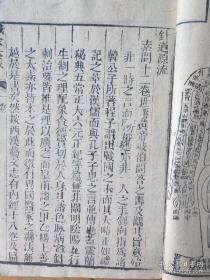 針道源流
素問十二卷世稱黃帝岐伯問答之書及觀其旨意殆
非一時之言而所撰述亦非一人之手劉向指為諸
韓公子所著程子謂出戰國之末而其大略正如禮
記之萃於漢儒而與孔子子思之言並傳也蓋靈蘭秘
典五常正大六元正紀等篇無非闡明陰陽五行
生制之理配象合德實切於人身其諸色脉病名針
刺治要皆推是理以廣之而皇甫謐之甲乙楊上善
之太素亦皆本之於此而微有異同醫家之綱法無
越於是書矣然按西漢藝文志有內經十八卷及扁